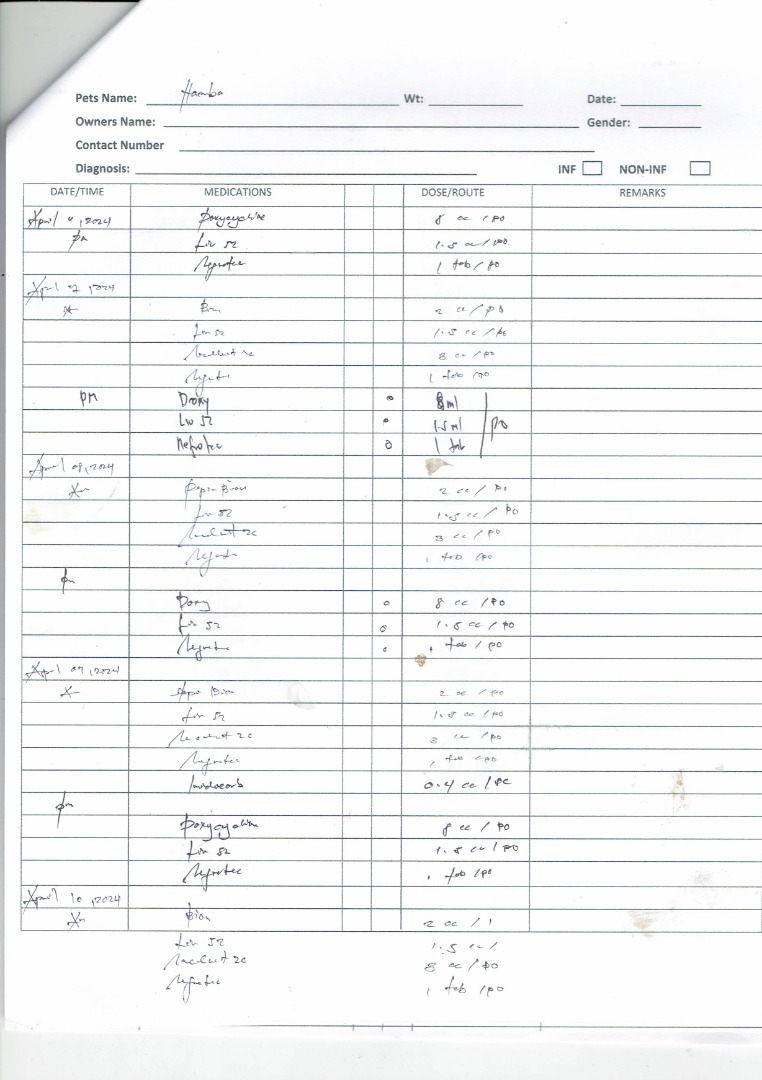 Pets Name: Hamba Wt: Date:
Owners Name: Gender:
Contact Number
Diagnosis: INF NON-INF
DATE/TIME MEDICATIONS DOSE/ROUTE REMARKS
April , 2024 Doxycycline 8 cc / po
pm Liv 52 1.5 cc / po
Nefrotec 1 tab / po
April 07, 2024
2 cc / po
Liv 52 1.5 cc / po
8 cc / po
1 tab po
pm Doxy 8 ml
Liv 52 1.5 ml po
Nefrotec 1 tab
April 08, 2024
Am 2 cc / po
Liv 52 1.5 cc / po
8 cc / po
1 tab po
pm
Doxy 8 cc / po
Liv 52 1.5 cc / po
Nefrotec 1 tab / po
April 09, 2024
2 cc / po
Liv 52 1.5 cc / po
8 cc / po
Nefrotec 1 tab / po
0.4 cc /
pm
Doxycycline 8 cc / po
Liv 52 1.5 cc / po
Nefrotec 1 tab / po
April 10, 2024
Am 2 cc /
Liv 52 1.5 cc /
8 cc / po
Nefrotec 1 tab / po